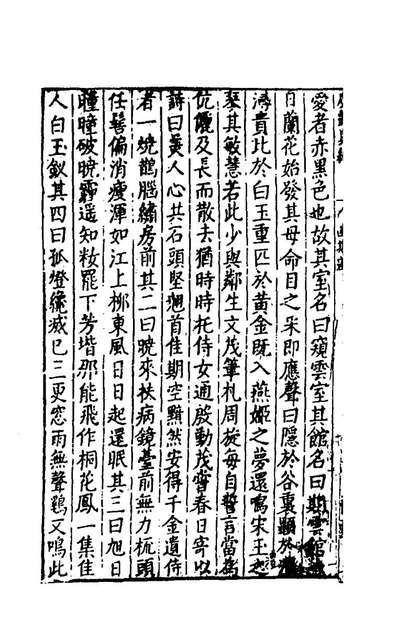 愛者赤黑色也故其室名曰窺雲室其館名曰期雲館
日蘭花始發其母命目之采即應聲曰隱於谷裏顯於
潯貴比於白玉重匹於黃金既入燕姬之夢還鳴宋玉之
琴其敏慧若此少與鄰生文茂筆札周旋每自誓言當爲
伉儷及長而散去猶時時托侍女通啟動茂嘗春日寄以
詩曰美人心共石頭堅翹首佳期空黯然安得千金遺侍
者一燒鵲腦繡房前其二曰曉來扶病鏡臺前無力梳頭
任髻偏消瘦渾如江上柳東風日日起還眠其三曰旭日
曈曈破曉霾遥知粧罷下芳堦那能飛作桐花鳳一集佳
人白玉釵其四曰孤燈纔滅已三更窓雨無聲鷄又鳴此